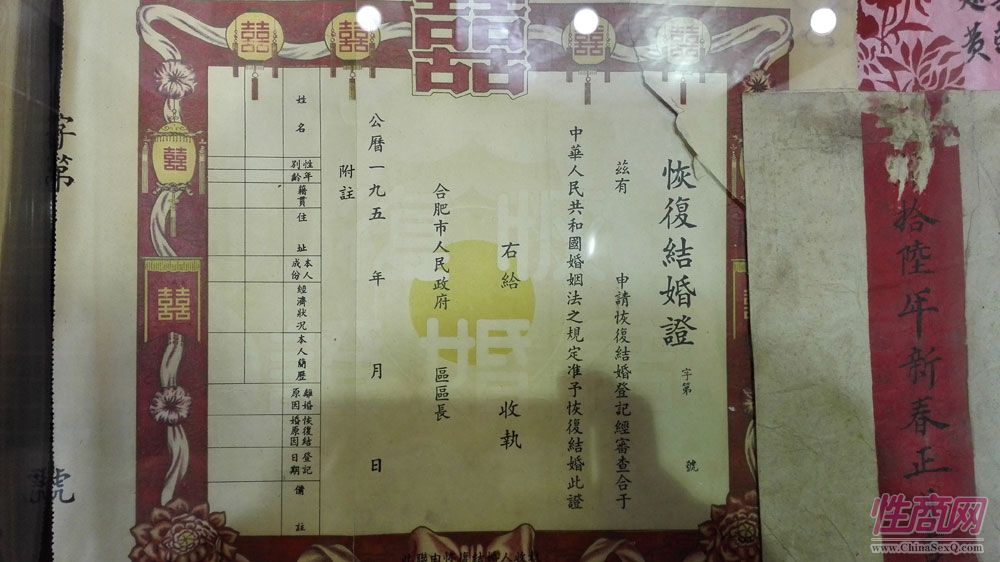 恢復結婚證
字第
號
茲有
申請恢復結婚登記經審查合于
中華人民共和國婚姻法之規定准予恢復結婚此證
右給
收執
合肥市人民政府
區區長
公曆一九五
年
月
日
附註
姓名
性別
年齡
籍貫
住址
本人成份
經濟狀况
本人簡歷
離婚原因
恢復結婚原因
登記日期
備註
囍
囍
囍
囍
囍
囍
囍
囍
恢復
結婚
字第
號
拾陸年新春正
性商网
www.ChinaSexQ.com